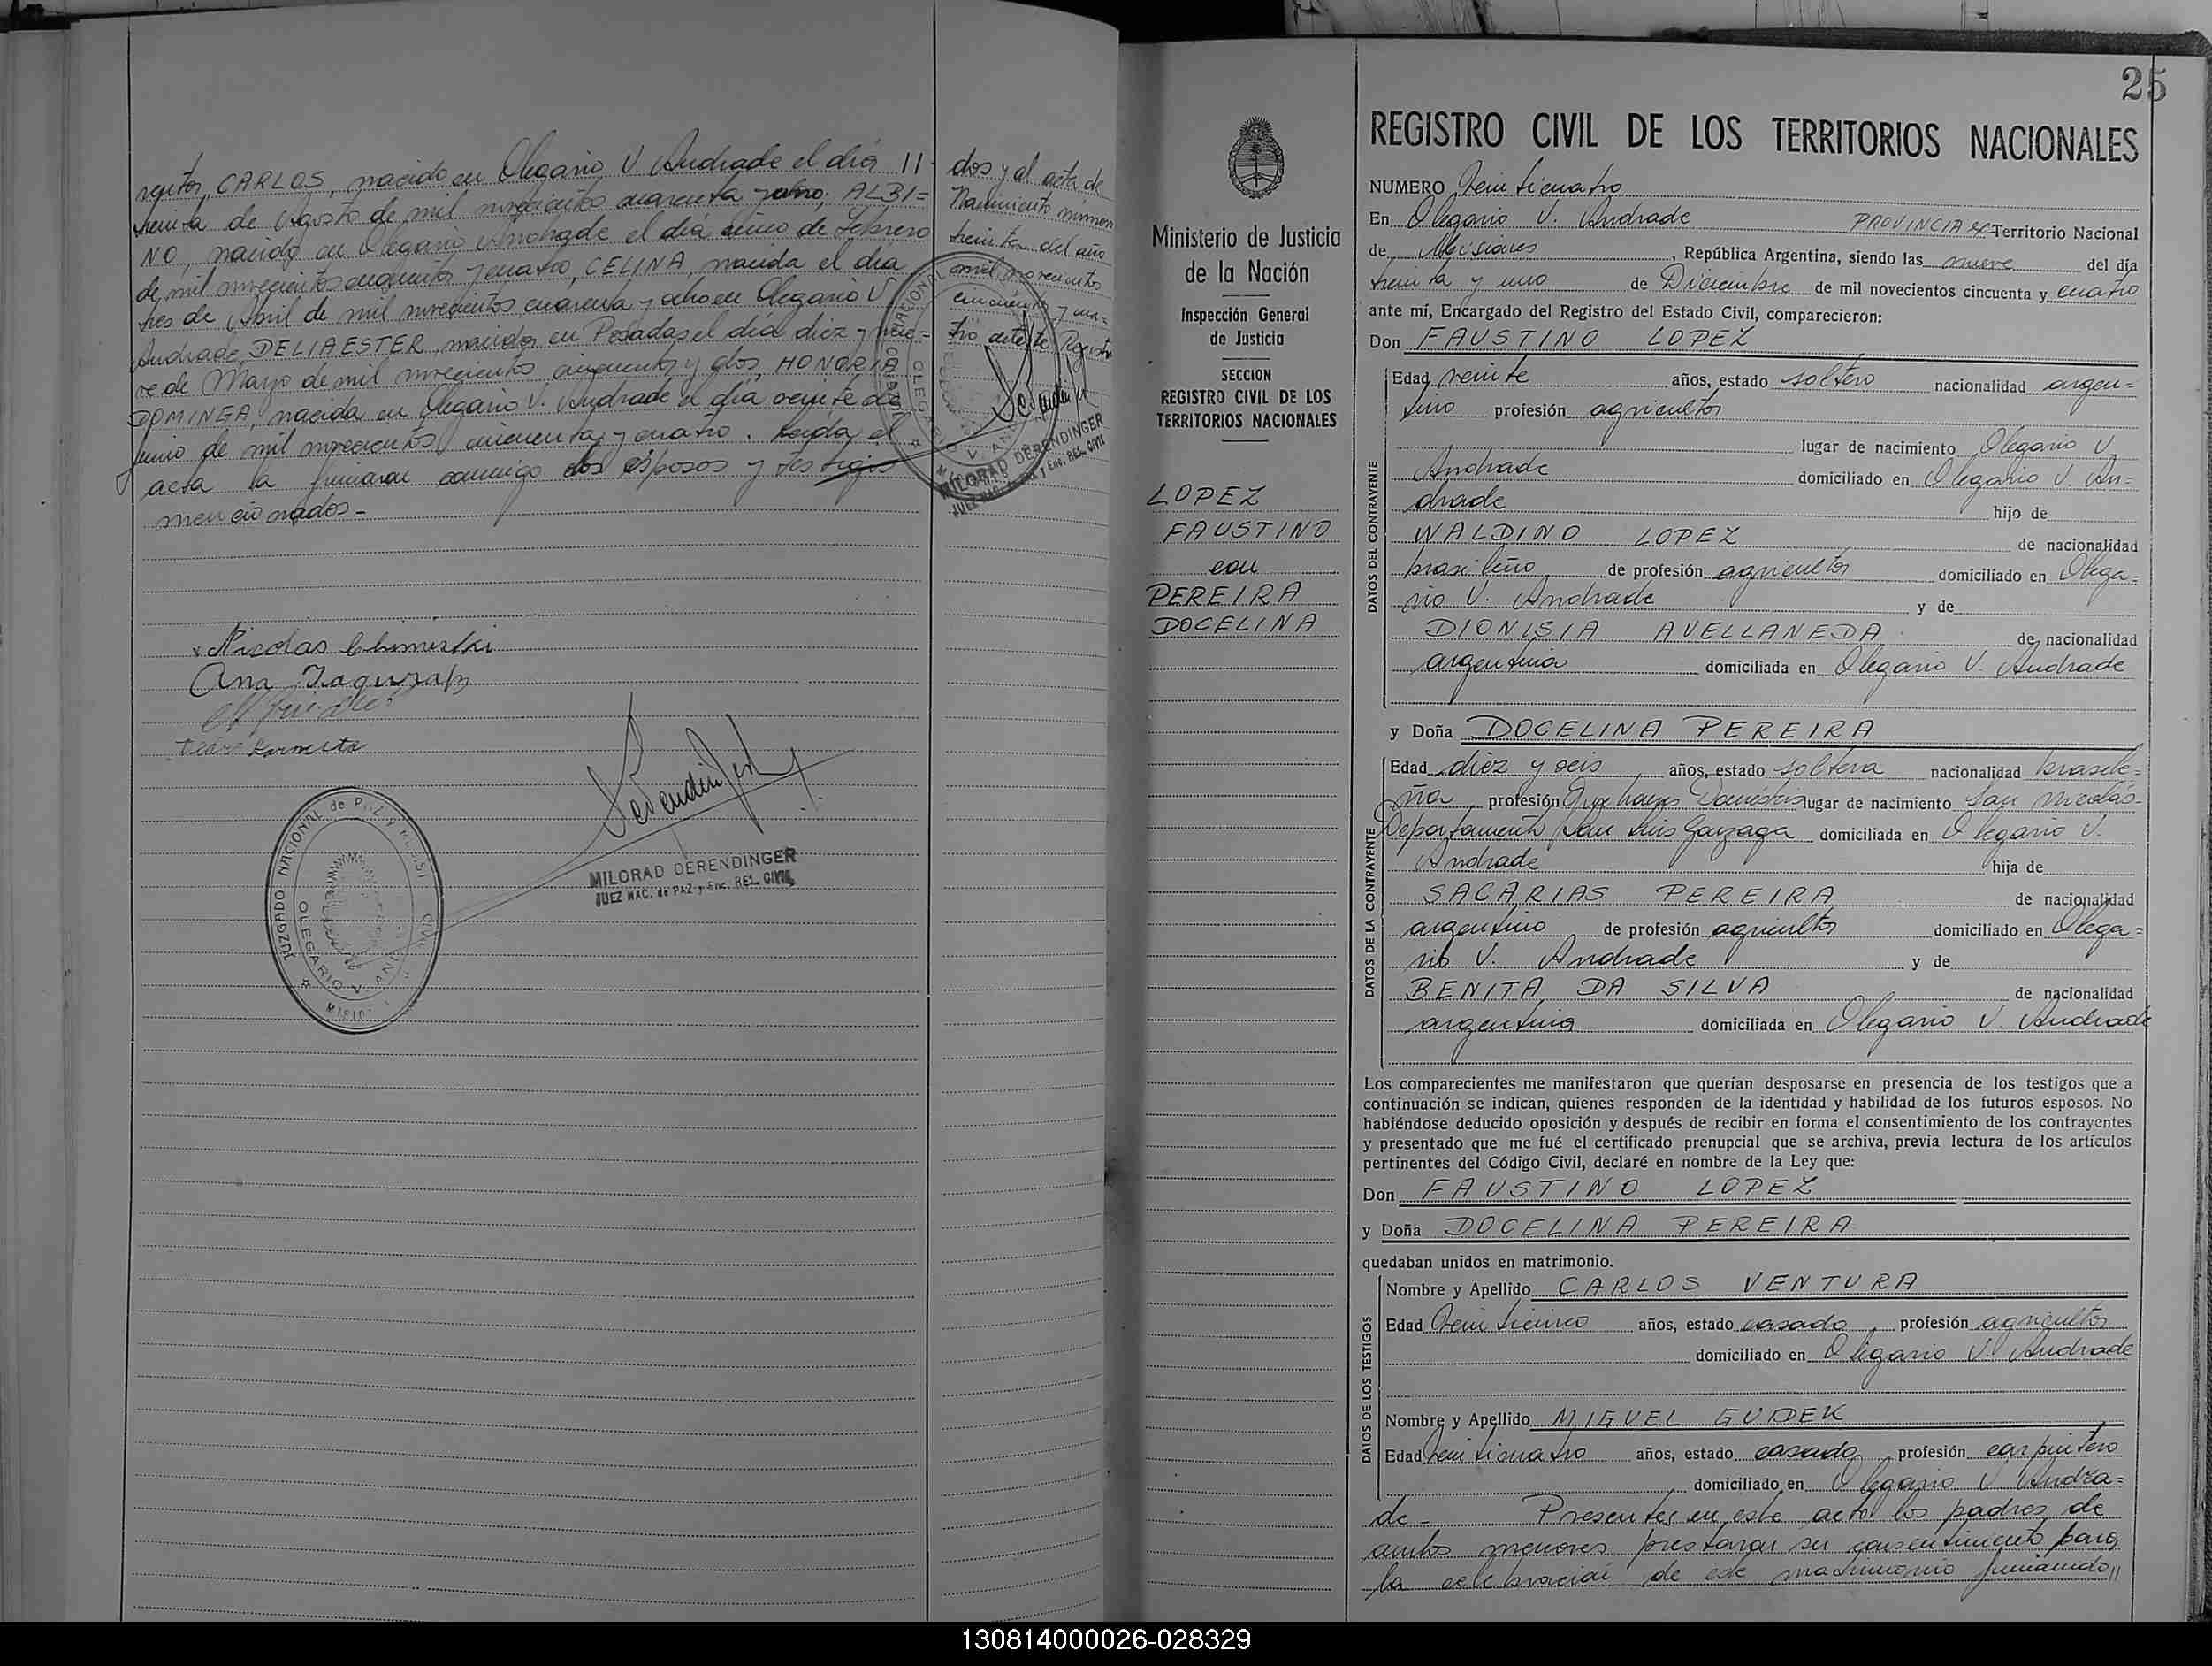 CARLOS, nacido en Olegario V. Andrade el día 11
treinta de Agosto de mil novecientos cuarenta y ocho, ALBI=
NO, nacido en Olegario Andrade el día cinco de Febrero
de mil novecientos cincuenta y cuatro, CELINA, nacida el día
tres de Abril de mil novecientos cuarenta y ocho en Olegario V.
Andrade, DELIA ESTER, nacida en Posadas el día diez y nue=
ve de Mayo de mil novecientos cincuenta y dos, HONORIA
DOMINGA, nacida en Olegario V. Andrade el día veinte de
Junio de mil novecientos cincuenta y cuatro. Leída el
acta la firmaron conmigo los esposos y testigos
mencionados.-
dos y al acta de
Nacimiento número
treinta del año
mil novecientos
cincuenta y cua=
tro de este Registro
MILORAD DERENDINGER
JUEZ NAC. de PAZ y Enc. REG. CIVIL
Nicolas
Ana
Pedro
JUZGADO NACIONAL de PAZ
OLEGARIO V. AND
MILORAD DERENDINGER
JUEZ NAC. de PAZ y Enc. REG. CIVIL
25
Ministerio de Justicia
de la Nación
Inspección General
de Justicia
SECCION
REGISTRO CIVIL DE LOS
TERRITORIOS NACIONALES
LOPEZ
FAUSTINO
con
PEREIRA
DOCELINA
REGISTRO CIVIL DE LOS TERRITORIOS NACIONALES
NUMERO Veinticuatro
En Olegario V. Andrade PROVINCIA Territorio Nacional
de Misiones, República Argentina, siendo las nueve del día
treinta y uno de Diciembre de mil novecientos cincuenta y cuatro
ante mí, Encargado del Registro del Estado Civil, comparecieron:
Don FAUSTINO LOPEZ
DATOS DEL CONTRAYENTE
Edad veinte años, estado soltero nacionalidad argen=
tino profesión agricultor
lugar de nacimiento Olegario V.
Andrade domiciliado en Olegario V. An=
drade hijo de
WALDINO LOPEZ de nacionalidad
brasileño de profesión agricultor domiciliado en Olega=
rio V. Andrade y de
DIONISIA AVELLANEDA de nacionalidad
argentina domiciliada en Olegario V. Andrade
y Doña DOCELINA PEREIRA
DATOS DE LA CONTRAYENTE
Edad diez y seis años, estado soltera nacionalidad brasile=
ña profesión Quehaceres Domésticos lugar de nacimiento San Nicolás-
Departamento San Luis Gonzaga domiciliada en Olegario V.
Andrade hija de
SACARIAS PEREIRA de nacionalidad
argentino de profesión agricultor domiciliado en Olega=
rio V. Andrade y de
BENITA DA SILVA de nacionalidad
argentina domiciliada en Olegario V. Andrade
Los comparecientes me manifestaron que querían desposarse en presencia de los testigos que a
continuación se indican, quienes responden de la identidad y habilidad de los futuros esposos. No
habiéndose deducido oposición y después de recibir en forma el consentimiento de los contrayentes
y presentado que me fué el certificado prenupcial que se archiva, previa lectura de los artículos
pertinentes del Código Civil, declaré en nombre de la Ley que:
Don FAUSTINO LOPEZ
y Doña DOCELINA PEREIRA
quedaban unidos en matrimonio.
DATOS DE LOS TESTIGOS
Nombre y Apellido CARLOS VENTURA
Edad Veinticinco años, estado casado profesión agricultor
domiciliado en Olegario V. Andrade
Nombre y Apellido MIGUEL GUDEK
Edad Veinticuatro años, estado casado profesión carpintero
domiciliado en Olegario V. Andra=
de - Presentes en este acto los padres de
ambos menores prestaron su consentimiento para
la celebración de este matrimonio firmando 11
130814000026-028329